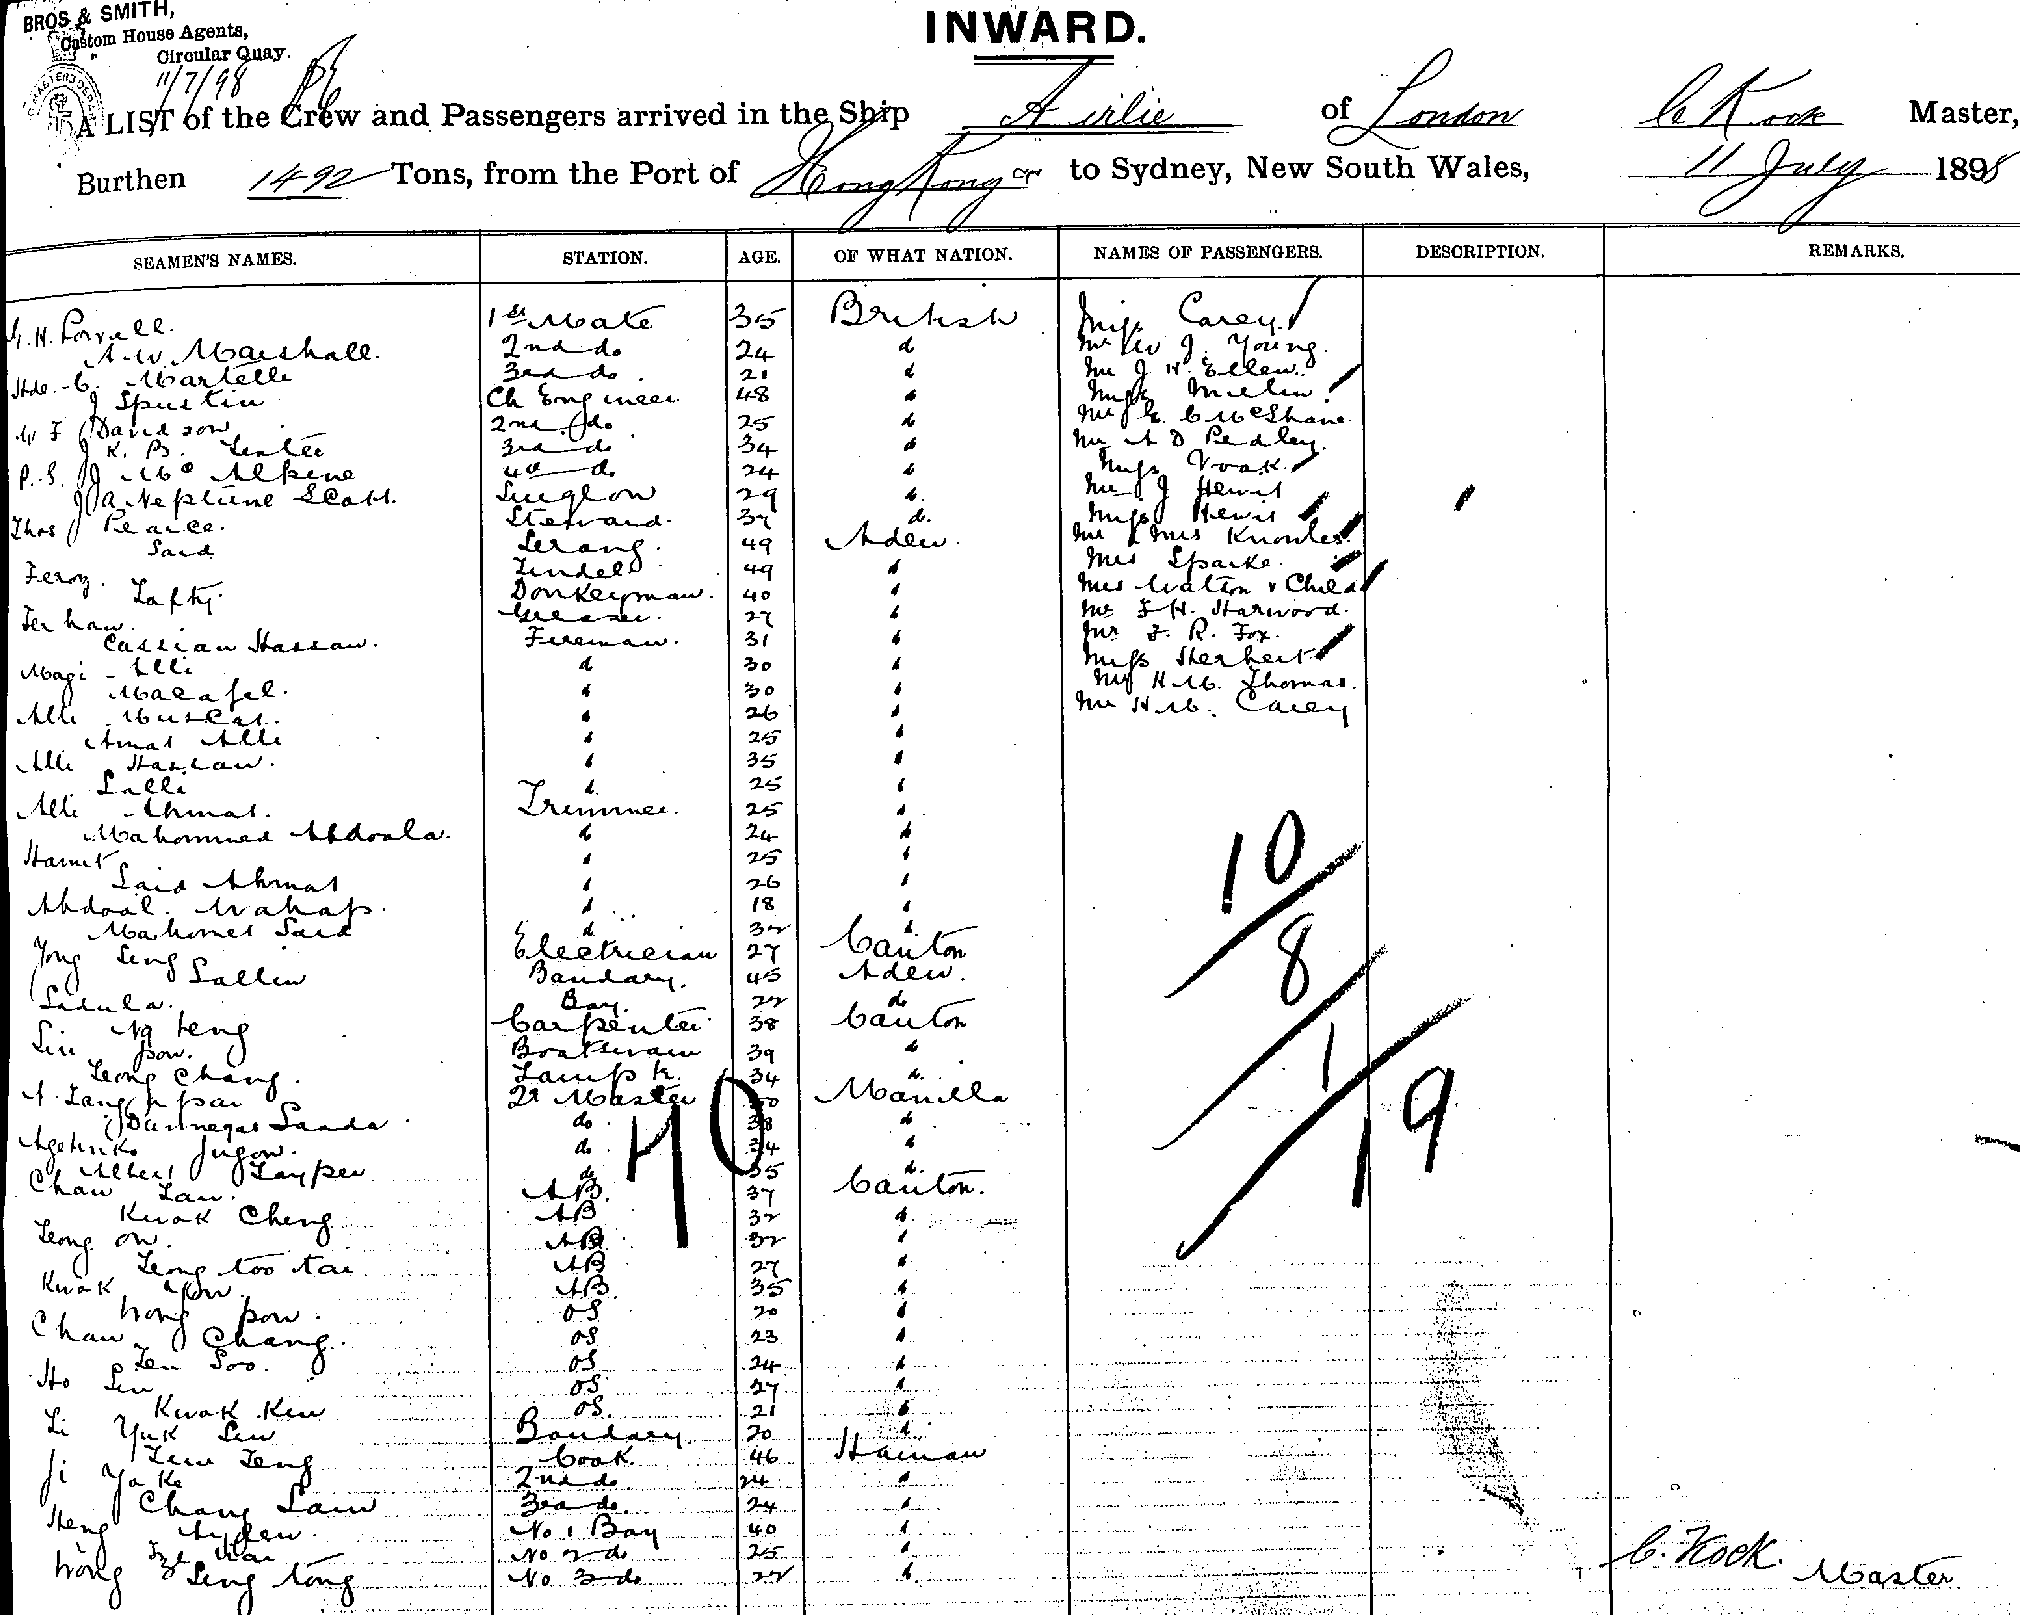 BROS & SMITH,
Custom House Agents,
Circular Quay.
11/7/98
INWARD.
A LIST of the Crew and Passengers arrived in the Ship Airlie of London C Kock Master,
Burthen 1492 Tons, from the Port of Hong Kong to Sydney, New South Wales, 11 July 1898
SEAMEN'S NAMES. STATION. AGE. OF WHAT NATION. NAMES OF PASSENGERS. DESCRIPTION. REMARKS.
1st Mate 35 British Miss Carey
A. W. Marshall. 2nd do 24 d Mr W J. Young.
C. Martelli 3rd do 21 d Mr J H. Ellen.
J Ch Engineer 48 d Miss
W F Davidson 2nd do 25 d Mr E. C McShane
J K. B. 3rd do 34 d Mr A D Pedley.
P. S. J McAlpine 4th do 24 d Miss Vook.
J A Neptune Scott. Surgeon 29 d. Mr J Hewit
Thos Pearce. Steward. 37 d. Miss Hewit
Said Serang. 49 Aden. Mr & Mrs Knowles
Feroz. Tindel 49 d Mrs Sparke.
Donkeyman. 40 d Mrs Watson & Child
Ferhan. Greaser 27 d Mr F H. Harwood.
Cassian Hassan. Fireman. 31 d Mr F. R. Fox.
Magi Alli d 30 d Miss Herbert
d 30 d Mr H. M. Thomas.
Alli Muscat. d 26 d Mr H M. Carey
Amat Alli d 25 d
Alli Hassan. d 35 d
Salli d 25 d
Alli Ahmat. Trimmer. 25 d
Mahommed Abdoola. d 24 d
Hamet d 25 d
Said Ahmat d 26 d
Abdool. Wahap. d 18 d
Mahomet Said d 32 d
Yong Seng Electrician 27 Canton
Sallim Bandary. 45 Aden.
Sadula. Boy. 22 d
Ng Keng Carpenter 38 Canton
Lin pow. Boatswain 39 d
Leong Chang. Lamp tr. 34 d.
Qr Master Manilla
do. 38 d
Jugon. do. 34 d
Albert do 35 d.
Chan Lan. AB. 37 Canton.
Kwok Cheng AB 32 d
Leong on. AB 32 d
Leong too tai AB 27 d
Kwok You. AB. 35 d
Wong pow. OS 20 d
Chan Chang. OS 23 d
Len Soo. OS 24 d
Ho Sin OS 27 d
Kwok Kin OS. 21 d
Li Yuk Sin Bandary 20 d
Cook. 46 Hainan
Ji Yake 2nd do 24 d
Chang Lam 3rd do. 24 d
Heng No 1 Boy 40 d
No 2 do 25 d
Wong Seng tong No 3 do 22 d.
10
8
1
19
40
C. Kock. Master